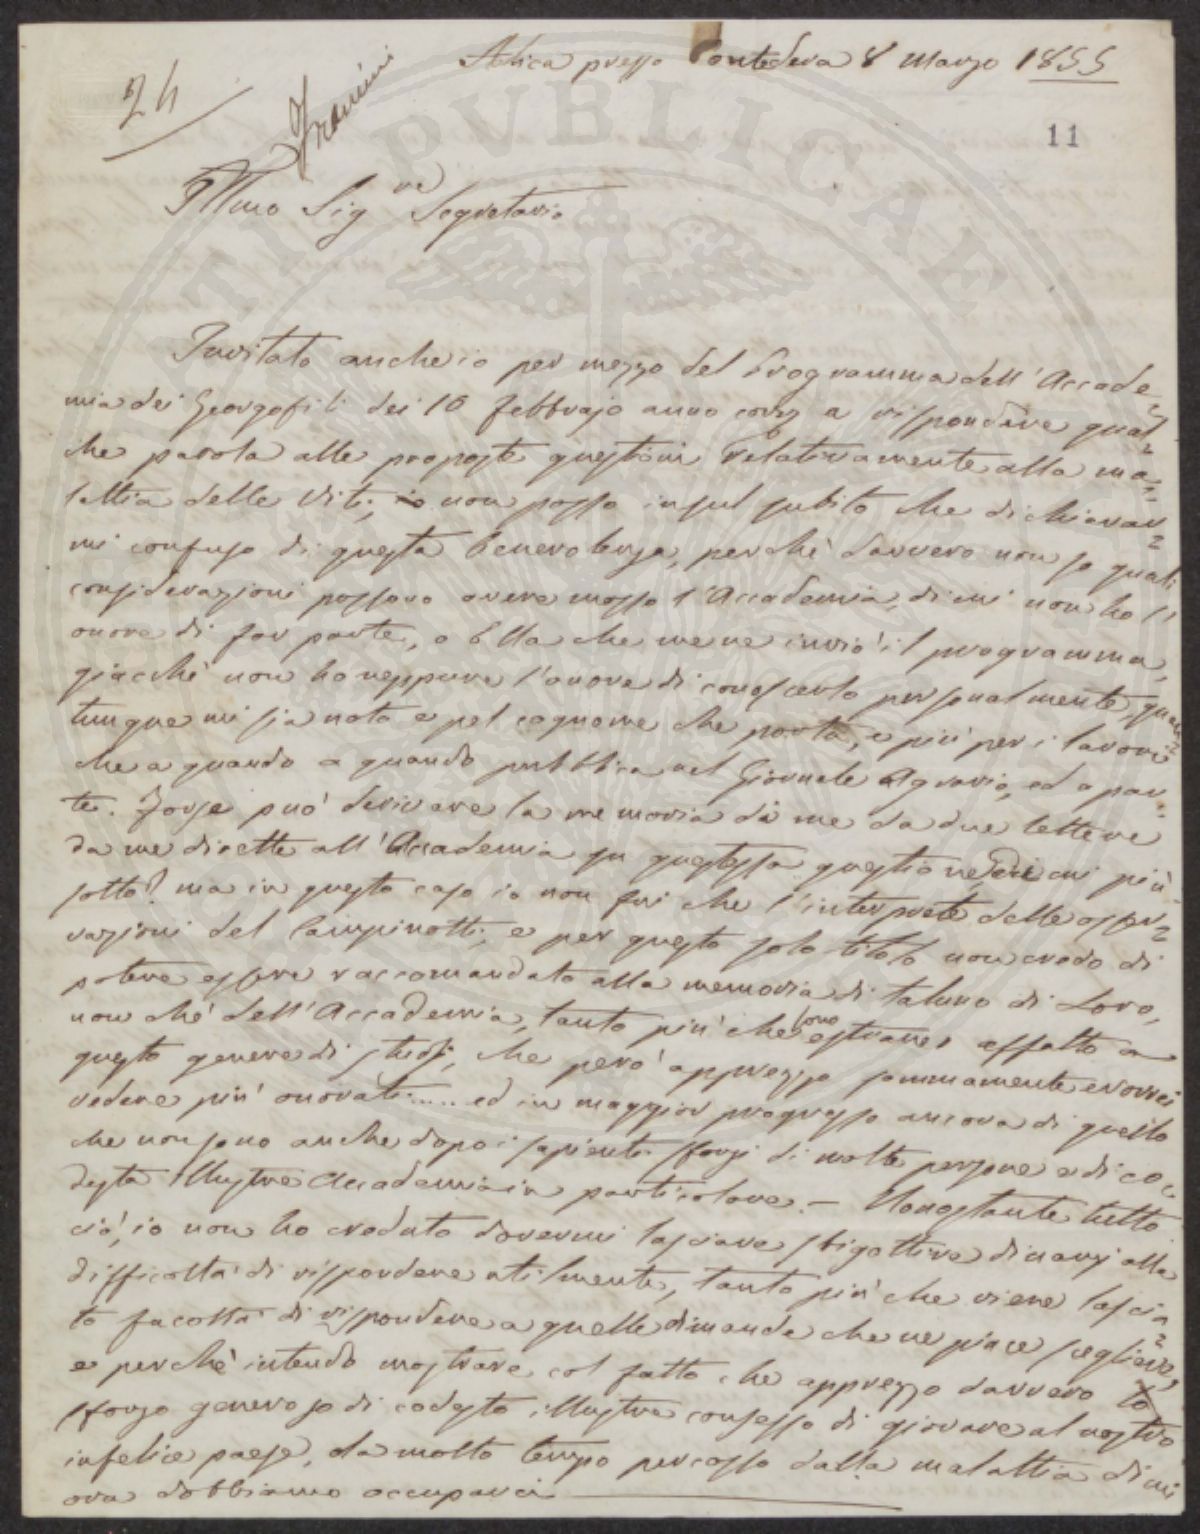 Alica presso Pontedera 8 Marzo 1855
24
Franini
11
Illmo Sigre Segretario
Invitato anche io per mezzo del Programma dell'Accade=
mia dei Georgofili dei 10 febbrajo anno corr a rispondere qual=
che parola alle proposte questioni relativamente alla ma=
lattia delle Viti, io non posso in sul subito che dichiarar=
mi confuso di questa benevolenza, perchè davvero non so quali
considerazioni possono avere mosso l'Accademia, di cui non ho l'
onore di far parte, o Ella che me ne inviò il programma,
giacchè non ho neppure l'onore di conoscerlo personalmente, quan=
tunque mi sia noto e pel cognome che porta, e più per i lavori
che a quando a quando pubblica nel Giornale Agrario, ed a par=
te. Forse può derivare la memoria di me da due lettere
da me dirette all'Accademia su questa questione, di cui più
sotto? ma in questo caso io non fui che l'interprete delle osser=
vazioni del Campinotti, e per questo solo titolo non credo di
potere essere raccomandato alla memoria di taluno di Loro,
non chè dell'Accademia, tanto più che sono estraneo affatto a
questo genere di studj, che però apprezzo sommamente e vorrei
vedere più onorati..... ed in maggior progresso ancora di quello
che non sono anche dopo i sapienti sforzi di molte persone e di co=
desta Illustre Accademia in particolare. — Nonostante tutto
ciò, io non ho creduto dovermi lasciare sbigottire dinanzi alla
difficoltà di rispondere utilmente, tanto più che viene lascia=
to facoltà di rispondere a quelle dimande che ne piace scegliere,
e perchè intendo mostrare col fatto che apprezzo davvero lo
sforzo generoso di codesto illustre consesso di giovare al nostro
infelice paese, da molto tempo percosso dalla malattia di cui
ora dobbiamo occuparci